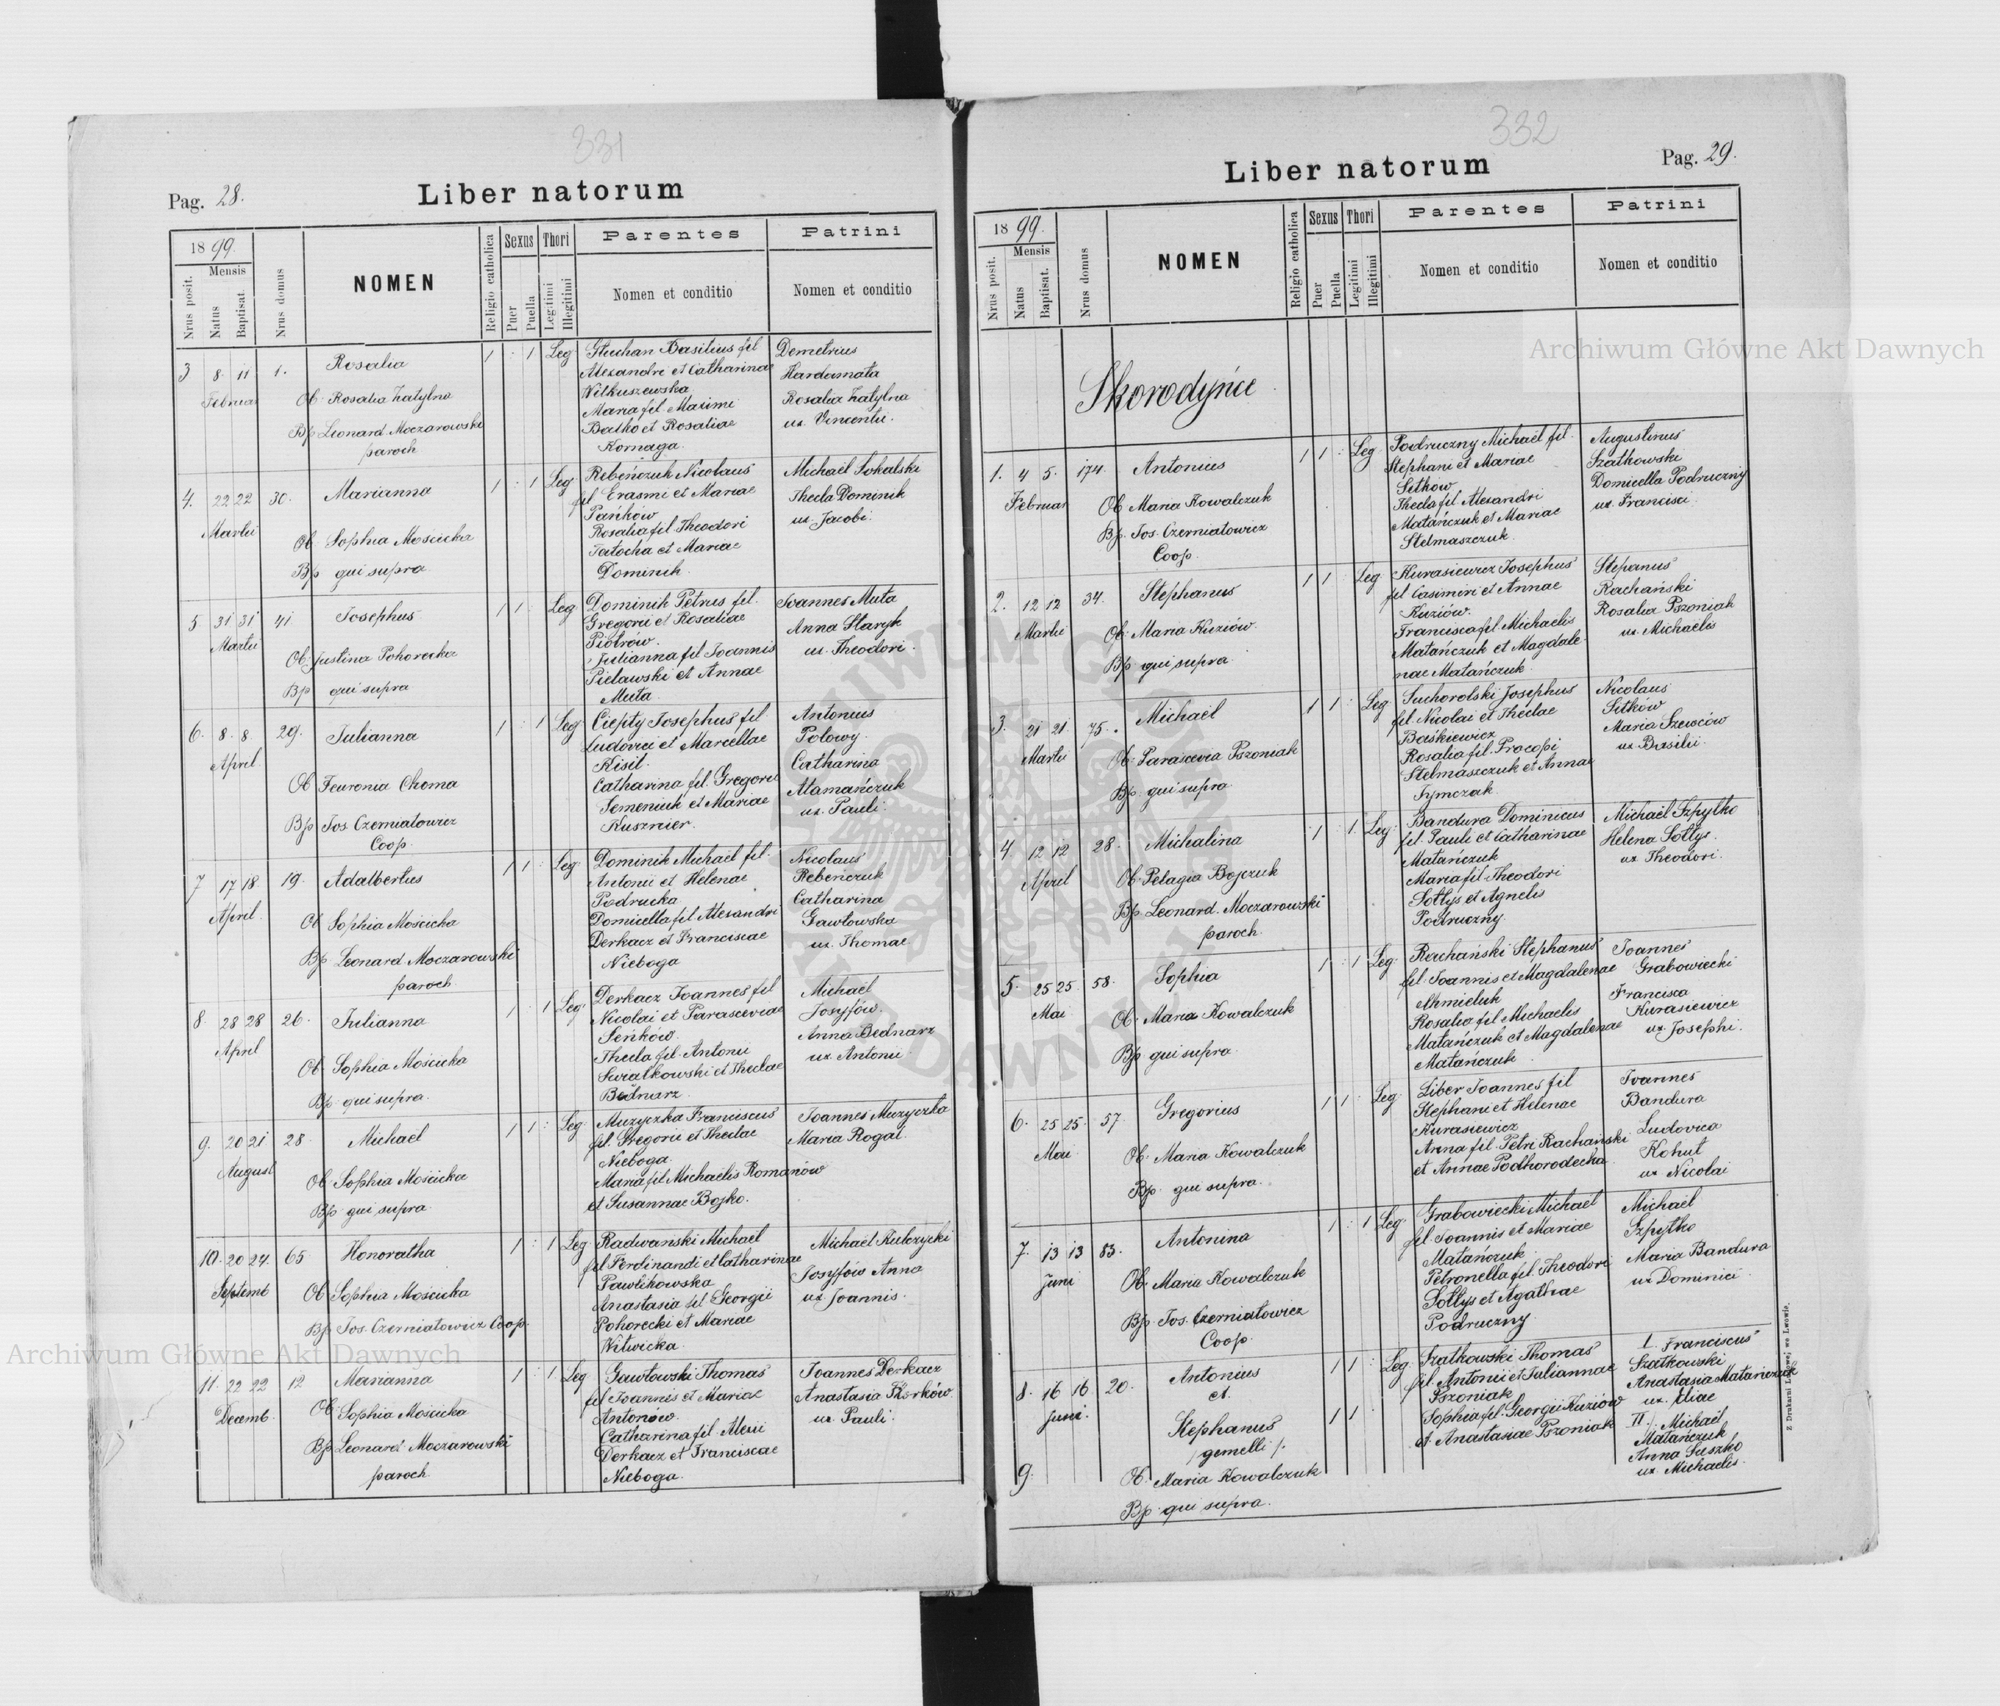 331
Pag. 28.
Liber natorum
1899.
Nrus posit.
Mensis
Natus
Baptisat.
Nrus domus
NOMEN
Religio catholica
Sexus
Puer
Puella
Thori
Legitimi
Illegitimi
Parentes
Nomen et conditio
Patrini
Nomen et conditio
3 8. 11 1. Rosalia 1 : 1 Leg
Februar
Ob. Rosalia Zatylna
Bp Leonard Moczarowski
paroch.
Głuchan Basilius fil
Alexandri et Catharinae
Wilkuszewska
Maria fil. Maximi
Batko et Rosaliae
Kornaga.
Demetrius
Hardamata
Rosalia Zatylna
ux. Vincentii.
4. 22 22 30. Marianna 1 : 1 Leg
Martii
Ob. Sophia Mościcka
Bp qui supra
Rebeńczuk Nicolaus
fil Erasmi et Mariae
Pańków
Rosalia fil Theodori
Tatocha et Mariae
Dominik.
Michaël Sohalski
Thecla Dominik
ux. Jacobi.
5 31 31 41 Josephus 1 1 : Leg
Martii
Ob. Justina Pohorecka
Bp qui supra
Dominik Petrus fil.
Gregorii et Rosaliae
Piotrów.
Julianna fil Joannis
Pielawski et Annae
Muta.
Joannes Muta
Anna Staryk
ux. Theodori.
6. 8. 8 29. Julianna 1 : 1 Leg
April
Ob Feuronia Choma
Bp Jos. Czerniatowicz
Coop.
Ciepły Josephus fil
Ludovici et Marcellae
Kisil.
Catharina fil. Gregorii
Semeniuk et Mariae
Kusznier.
Antonius
Polowy.
Catharina
Atamańczuk
ux. Pauli.
7 17 18 19. Adalbertus 1 1 : Leg
April.
Ob Sophia Mościcka
Bp Leonard Moczarowski
paroch
Dominik Michaël fil.
Antonii et Helenae
Podrucka
Domicella fil Alexandri
Derkacz et Franciscae
Nieboga
Nicolaus
Rebeńczuk
Catharina
Gawłowska
ux. Thomae.
8 28 28 26. Julianna 1 : 1 Leg
April
Ob Sophia Mościcka
Bp qui supra.
Derkacz Joannes fil
Nicolai et Parasceviae
Seńków
Thecla fil. Antonii
Swiałkowski et Theclae
Bednarz.
Michaël
Josyfów.
Anna Bednarz
ux. Antonii.
9. 20 21 28 Michaël 1 1 : Leg
August
Ob Sophia Mościcka
Bp qui supra.
Muzyczka Franciscus
fil. Gregorii et Theclae
Nieboga.
Maria fil Michaëlis Romanów
et Susannae Bojko.
Joannes Muzyczka
Maria Rogal.
10. 20 24. 65 Honoratha 1 : 1 Leg
Septemb
Ob Sophia Mościcka
Bp Jos. Czerniatowicz Coop.
Radwański Michaël
fil Ferdinandi et Catharinae
Pawlikowska
Anastasia fil Georgii
Pohorecki et Mariae
Witwicka.
Michaël Kulczycki
Josyfów Anna
ux Joannis.
11. 22 22 12 Marianna 1 : 1 Leg
Decemb.
Ob Sophia Mościcka
Bp Leonard Moczarowski
paroch
Gawłowski Thomas
fil Joannis et Mariae
Antonow
Catharina fil. Alexii
Derkacz et Franciscae
Nieboga.
Joannes Derkacz
Anastasia
ux Pauli.
332
Liber natorum
Pag. 29.
1899.
Nrus posit.
Mensis
Natus
Baptisat.
Nrus domus
NOMEN
Religio catholica
Sexus
Puer
Puella
Thori
Legitimi
Illegitimi
Parentes
Nomen et conditio
Patrini
Nomen et conditio
Skorodyńce
1. 4 5. 174. Antonius 1 1 : Leg
Februar
Ob Maria Kowalczuk
Bp. Jos. Czerniatowicz
Coop.
Podruczny Michaël fil.
Stephani et Mariae
Setków
Thecla fil Alexandri
Matańczuk et Mariae
Stelmaszczuk.
Augustinus
Szatkowski
Domicella Podruczny
ux. Francisci.
2. 12 12 34. Stephanus 1 1 : Leg
Martii
Ob. Maria Kuziów.
Bp qui supra
Kurasiewicz Josephus
fil Casimiri et Annae
Kuziów.
Francisca fil. Michaëlis
Matańczuk et Magdale-
nae Matańczuk.
Stepanus
Rachański
Rosalia Pszoniak
ux. Michaëlis
3. 21 21 75. Michaël 1 1 : Leg
Martii
Ob. Parascevia Pszoniak
Bp. qui supra.
Suchorolski Josephus
fil. Nicolai et Theclae
Baśkiewicz
Rosalia fil. Procopi
Stelmaszczuk et Annae
Symczak.
Nicolaus
Setków
Maria Szewców
ux Basilii.
4 12 12 28. Michalina 1 : 1. Leg.
April
Ob. Pelagia Bojczuk
Bp. Leonard. Moczarowski
paroch.
Bandura Dominicus
fil. Pauli et Catharinae
Matańczuk
Maria fil. Theodori
Sołtys et Agnetis
Podruczny.
Michaël Szpytko
Helena Sołtys.
ux Theodori.
5. 25 25. 58. Sophia 1 : 1 Leg.
Mai
Ob. Maria Kowalczuk
Bp qui supra.
Rachański Stephanus
fil. Joannis et Magdalenae
Chmieluk
Rosalia fil Michaëlis
Matańczuk et Magdalenae
Matańczuk.
Joannes
Grabowiecki
Francisca
Kurasiewicz
ux Josephi.
6. 25 25. 57. Gregorius 1 1 : Leg
Mai
Ob. Maria Kowalczuk
Bp. qui supra.
Liber Joannes fil
Stephani et Helenae
Kurasiewicz
Anna fil. Petri Rachański
et Annae Podhorodecka.
Joannes
Bandura
Ludovica
Kohut
ux Nicolai
7. 13 13 83. Antonina 1 : 1 Leg.
Juni
Ob Maria Kowalczuk
Bp. Jos. Czerniatowicz
Coop.
Grabowiecki Michaël
fil. Joannis et Mariae
Matańczuk.
Petronella fil. Theodori
Sołtys et Agathae
Podruczny
Michaël
Szpytko
Maria Bandura
ux Dominici.
8. 16 16 20. Antonius 1 1 : Leg.
et.
Juni.
Stephanus 1 1 :
/gemelli/.
9. Ob. Maria Kowalczuk
Bp. qui supra.
Szatkowski Thomas
fil. Antonii et Juliannae
Pszoniak
Sophia fil. Georgii Kuziów
et Anastasiae Pszoniak
I. Franciscus
Szatkowski
Anastasia Matańczuk
ux. Eliae
II. Michaël
Matańczuk
Anna Suszko
ux Michaelis.
Z Drukarni Ludowej we Lwowie.
Archiwum Główne Akt Dawnych
Archiwum Główne Akt Dawnych